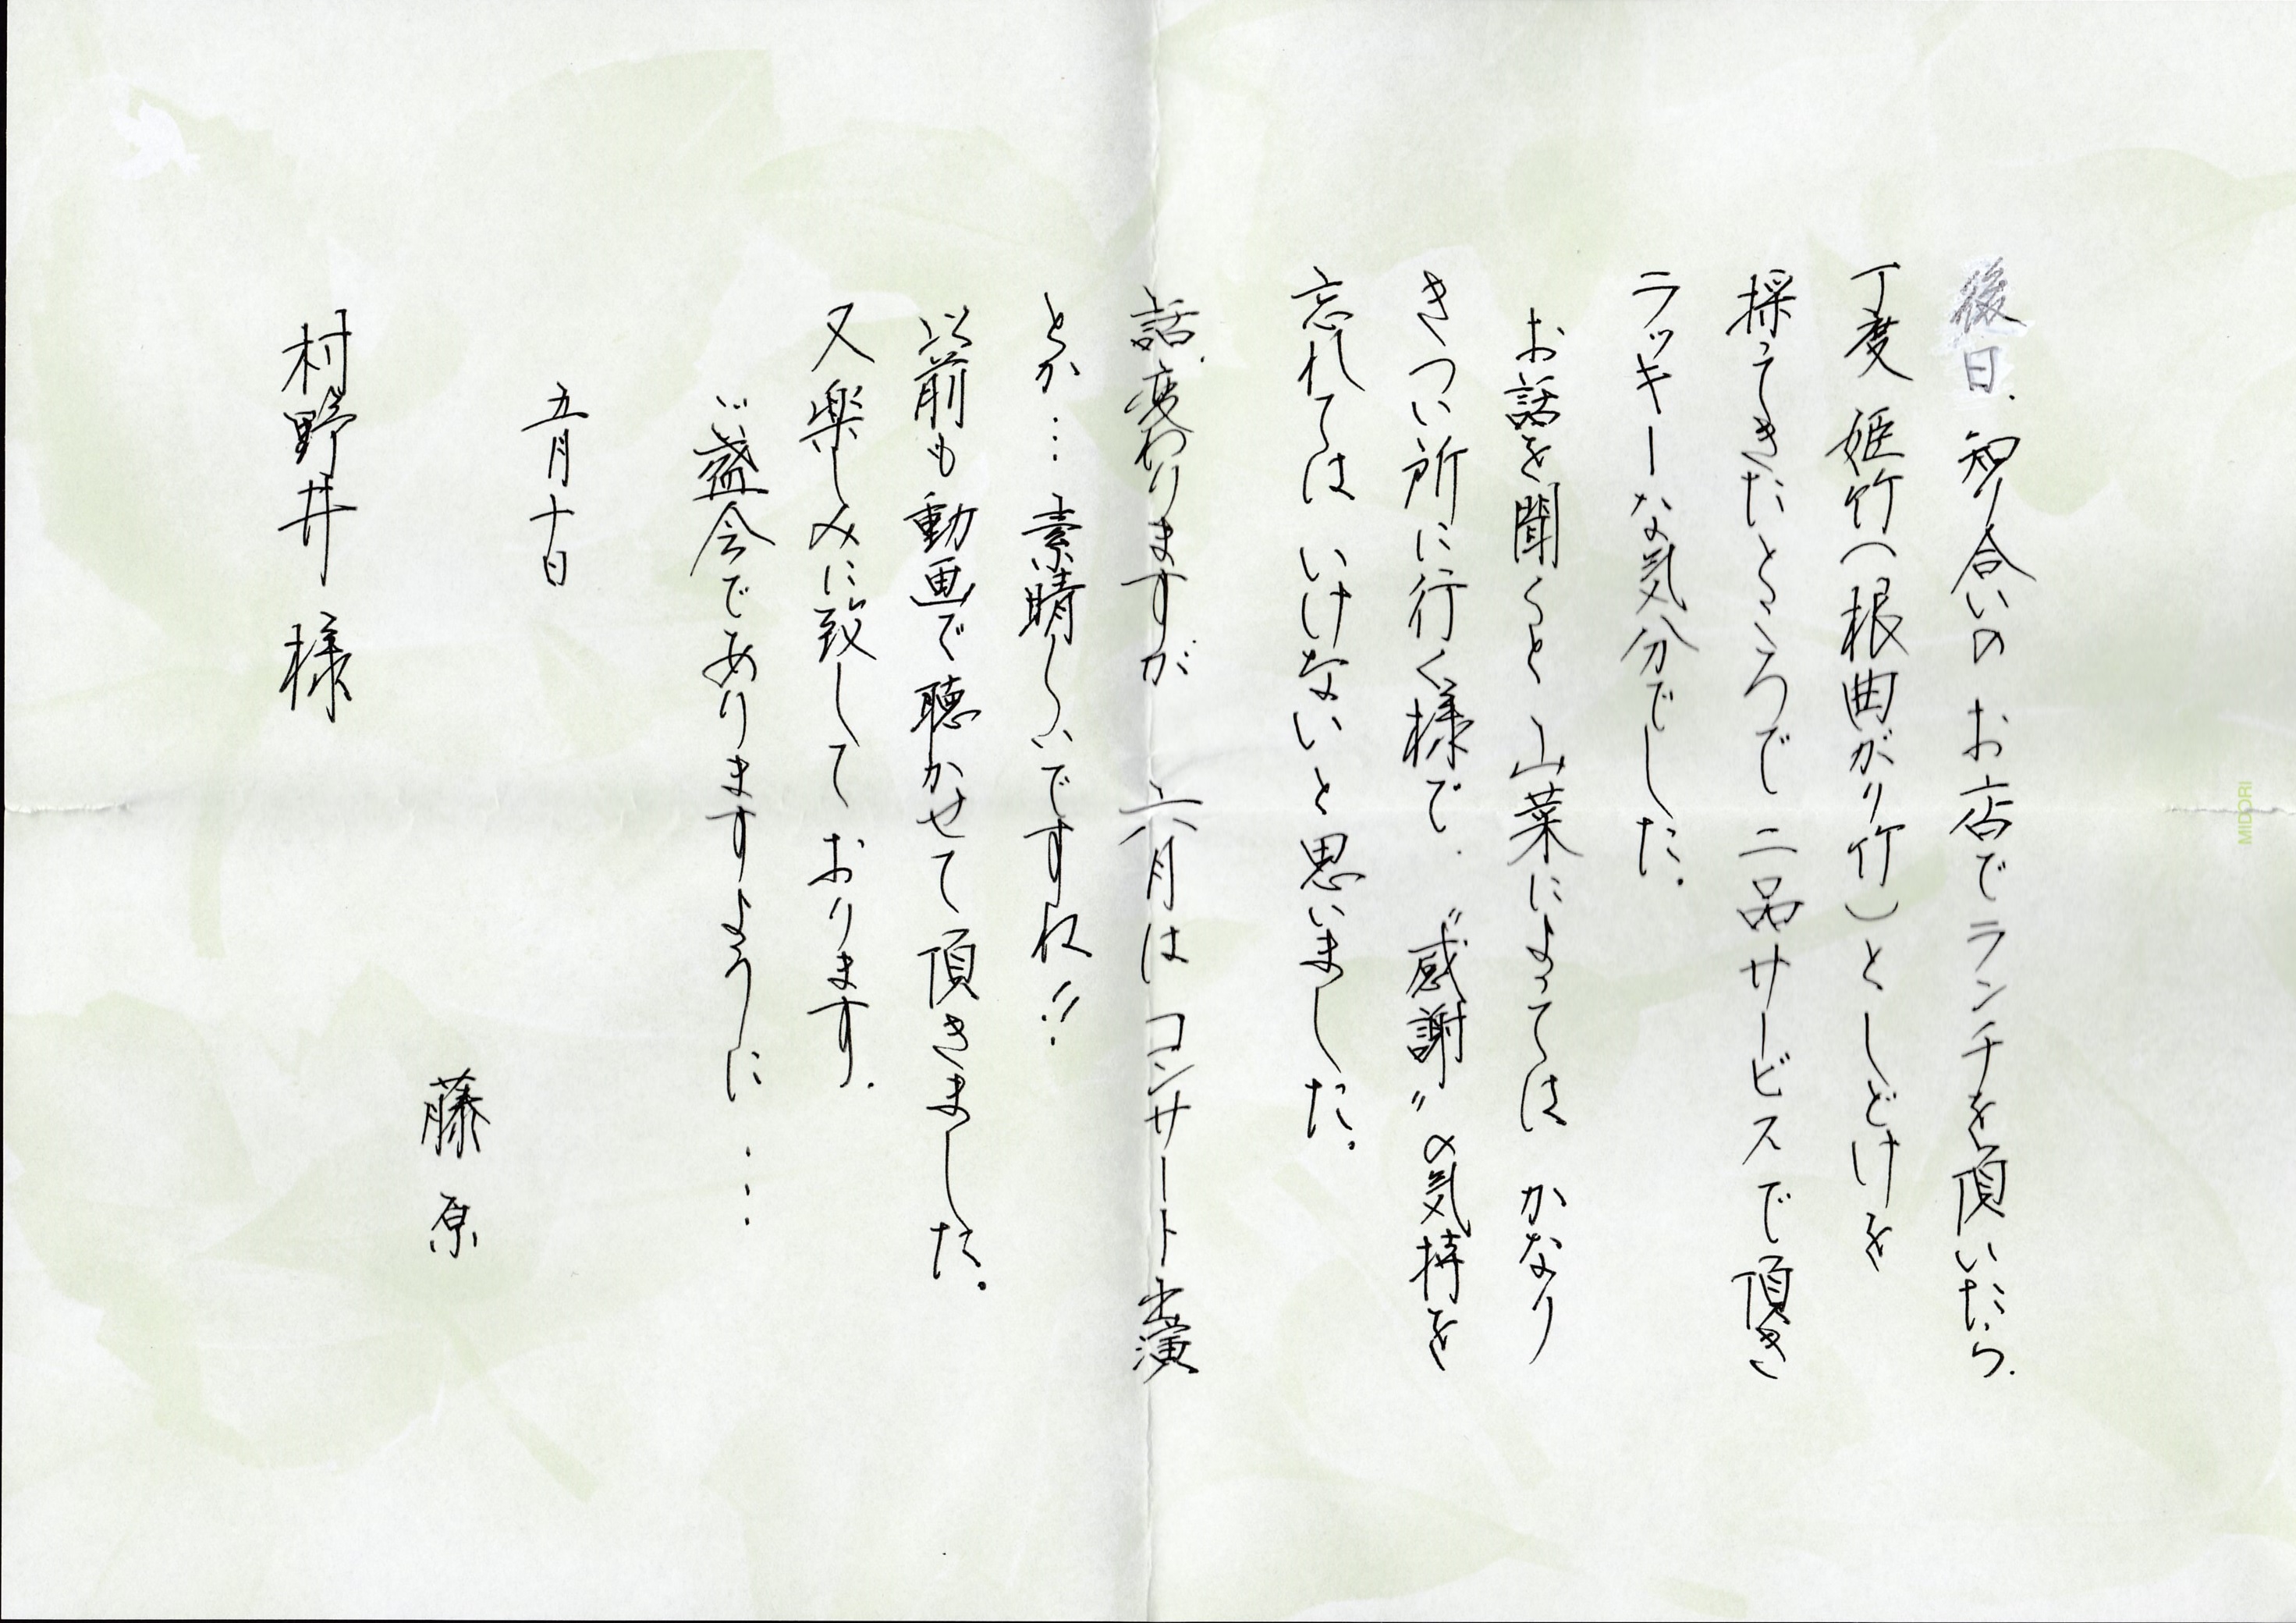 後日、知り合いのお店でランチを頂いたら、
丁度 姫竹(根曲がり竹)としどけを
採ってきたところで 二品サービスで頂き
ラッキーな気分でした。
お話を聞くと 山菜によっては かなり
きつい所に行く様で、〝感謝〟の気持を
忘れては いけないと思いました。
話、変わりますが 六月は コンサート出演
とか… 素晴しいですね!!
以前も 動画で 聴かせて 頂きました。
又 楽しみに致して おります。
ご盛会でありますように …
五月十日
藤原
村野井 様
MIDORI